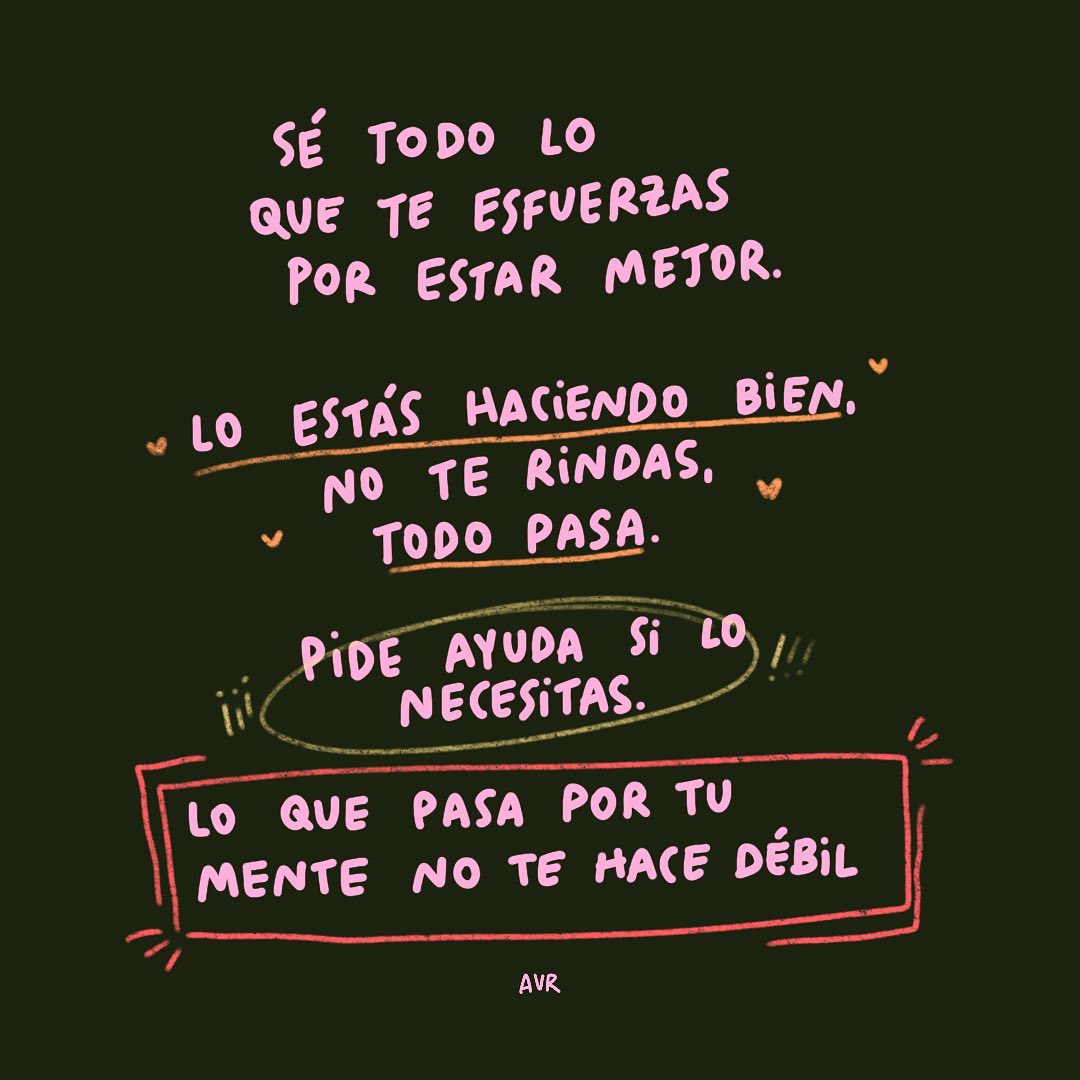 SÉ TODO LO
QUE TE ESFUERZAS
POR ESTAR MEJOR.
LO ESTÁS HACiENDO BiEN,
NO TE RiNDAS,
TODO PASA.
¡¡¡ PiDE AYUDA Si LO !!!
NECESiTAS.
LO QUE PASA POR TU
MENTE NO TE HACE DÉBiL
AVR